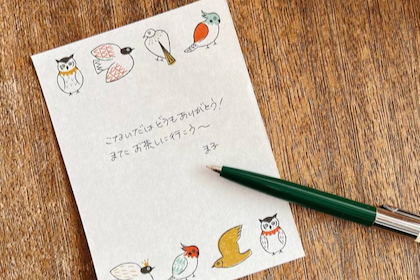 こないだは どうもありがとう!
また お茶しに行こう〜
まみ